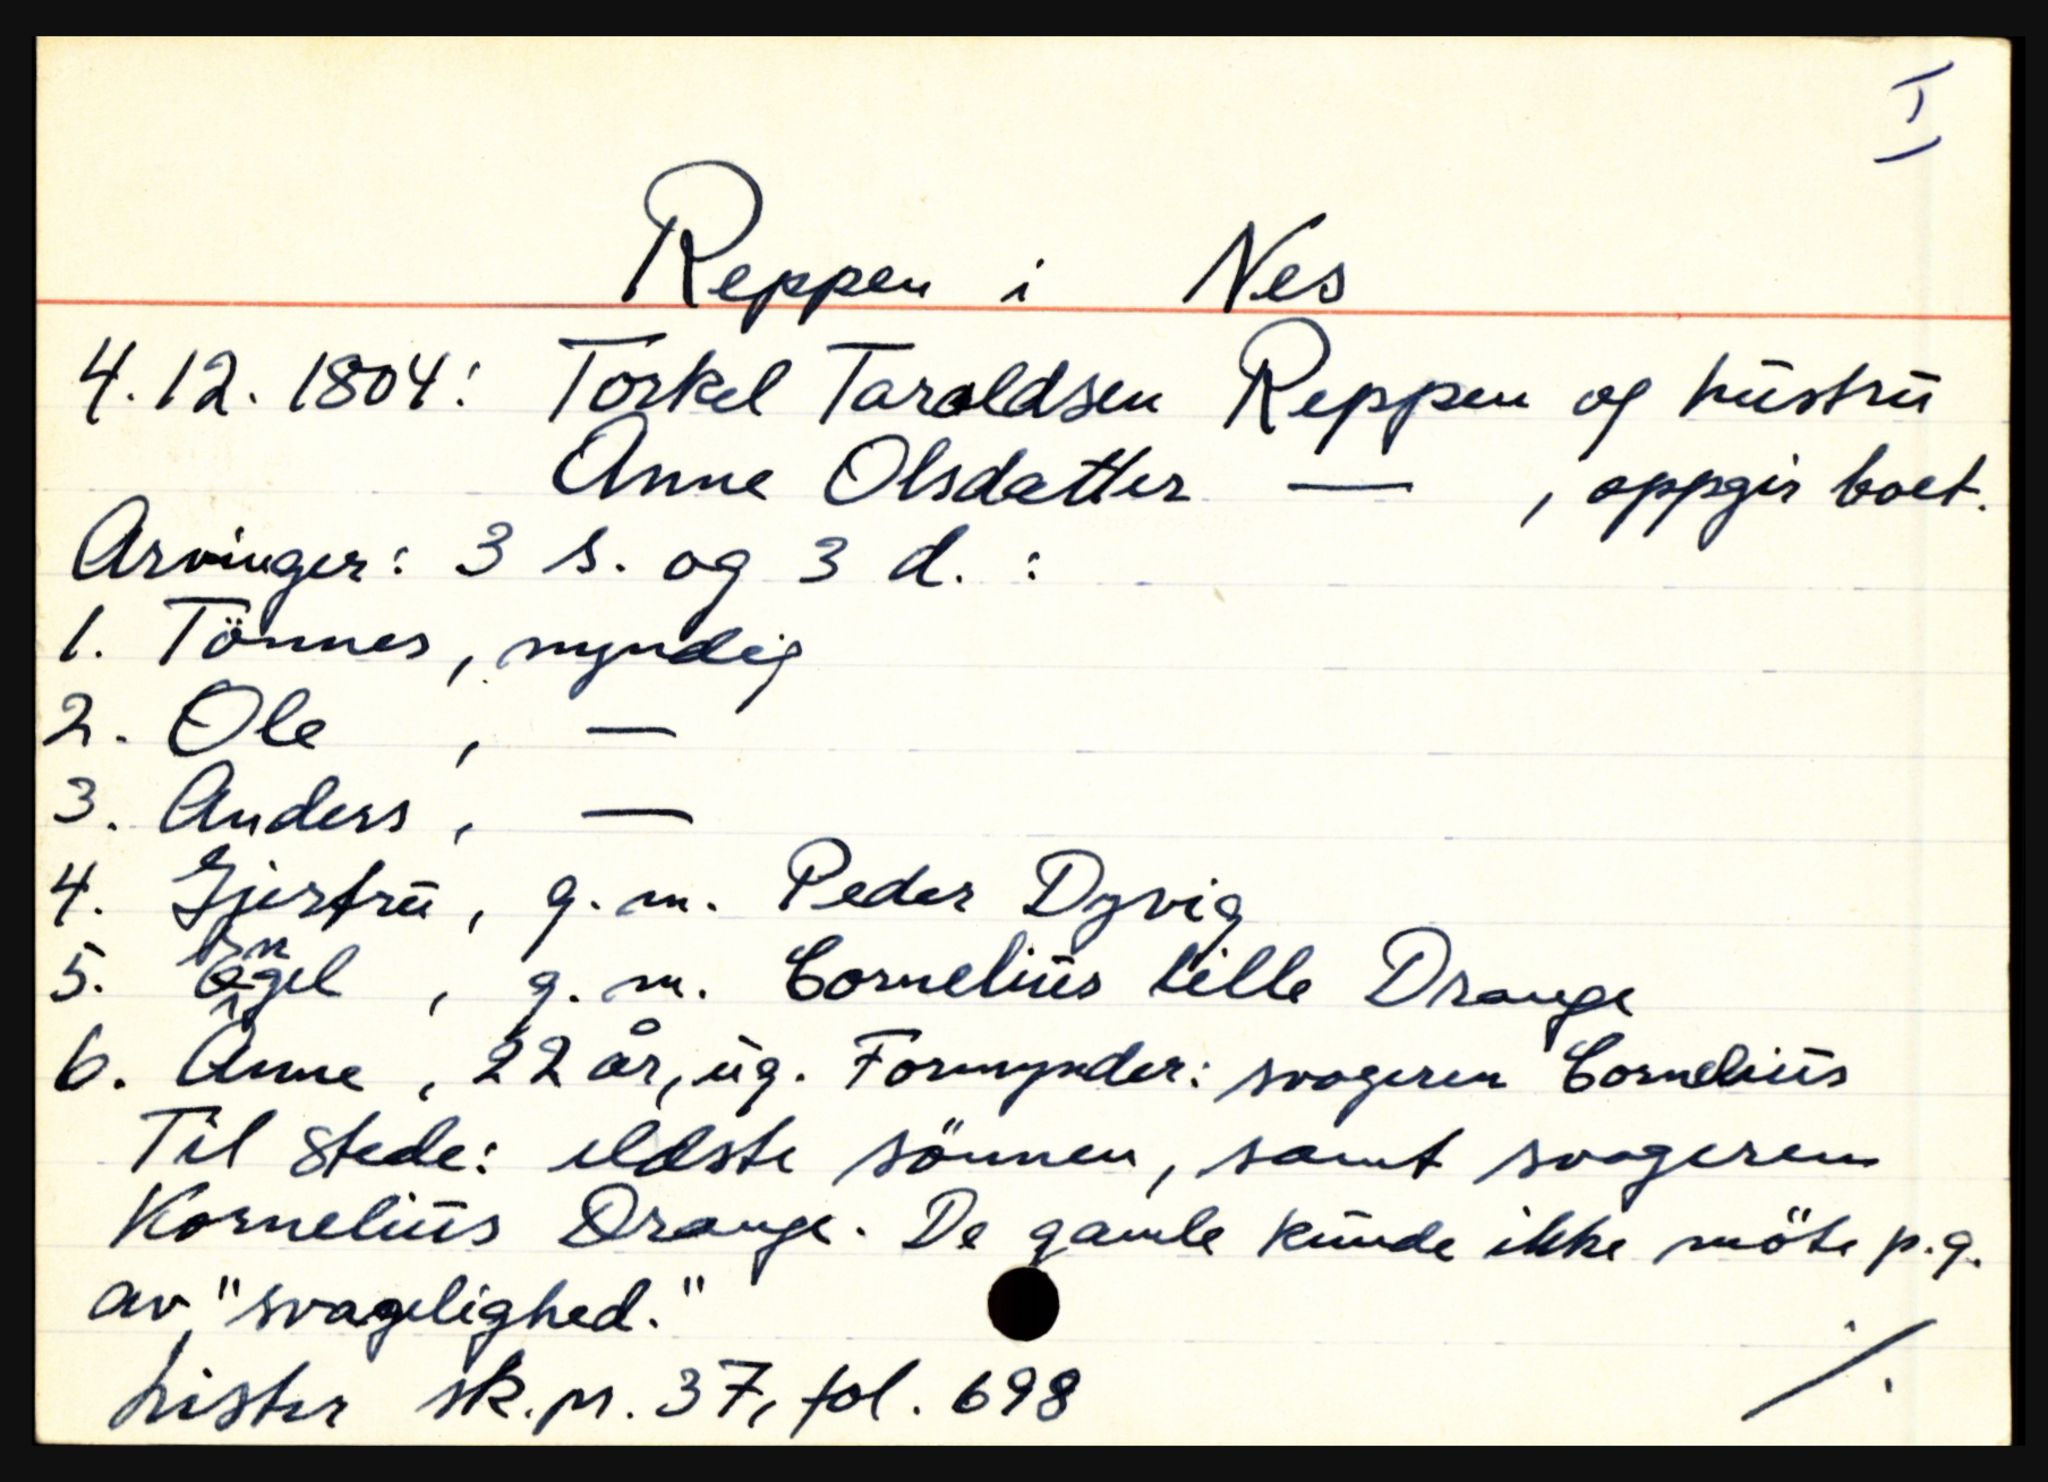 I
Reppen i Nes
4.12.1804: Torkel Taraldsen Reppen og hustru
Anne Olsdatter — , oppgir boet.
Arvinger: 3 s. og 3 d. :
1. Tönnes, myndig
2. Ole , —
3. Anders , —
4. Gjertru , g. m. Peder Dyvig
5. Engel , g. m. Cornelius lille Drange
6. Anne , 22 år, ug. Formynder: svogeren Cornelius
Til stede: eldste sönnen, samt svogeren
Kornelius Drange. De gamle kunde ikke möte p.g.
av "svagelighed."
Lister sk.pr. 37, fol. 698
./.